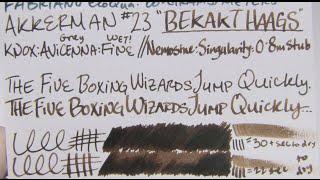 FABRIANO
AKKERMAN #23 "BEKAKT HAAGS"
Grey WET!
KNOX: AVICENNA: FINE // Nemosine: Singularity: 0.8m Stub
THE FIVE BOXING WIZARDS JUMP QUICKLY.
THE FIVE BOXING WIZARDS JUMP QUICKLY...
= 30+ sec to dry
to
= 22 sec dry